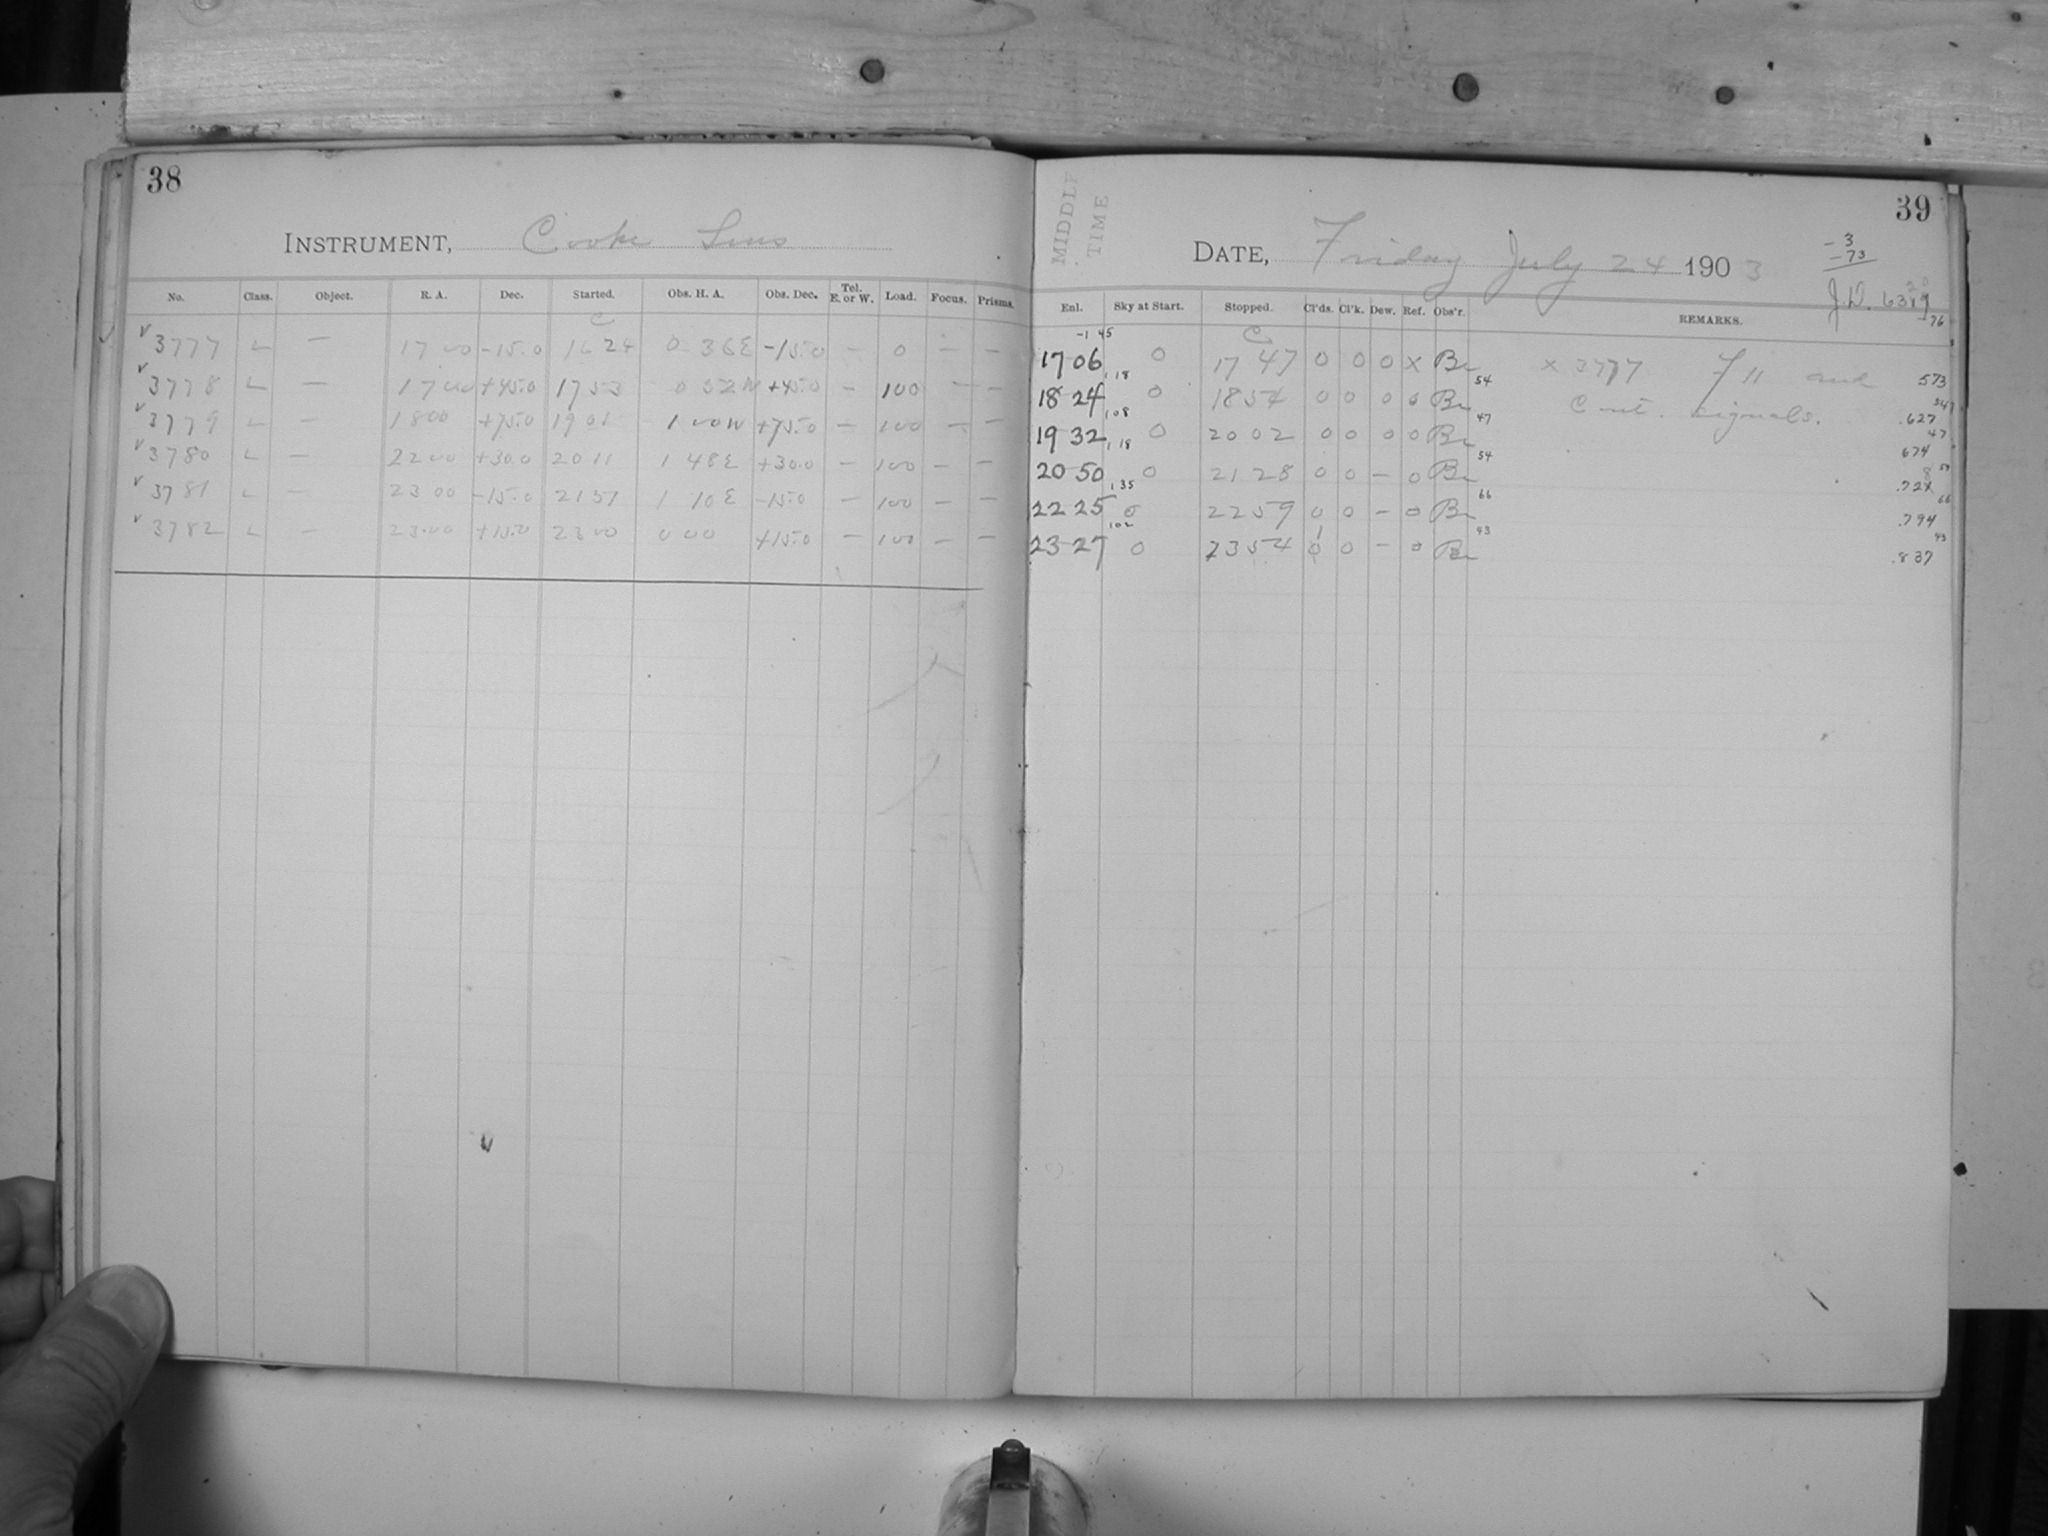 38
INSTRUMENT, Cooke Lens
No. Class. Object. R. A. Dec. Started. Obs. H. A. Obs. Dec. Tel. E. or W. Load. Focus. Prisms.
C
v 3777 L — 17 00 -15.0 16 24 0 36E -15.0 — 0 — —
v 3778 L — 17 00 +45.0 17 53 0 52W +45.0 — 100 — —
v 3779 L — 18 00 +75.0 19 01 1 00W +75.0 — 100 — —
v 3780 L — 22 00 +30.0 20 11 1 48E +30.0 — 100 — —
v 3781 L — 23 00 -15.0 21 51 1 10E -15.0 — 100 — —
v 3782 L — 23.00 +15.0 23 00 0 00 +15.0 — 100 — —
39
MIDDLE
TIME
DATE, Friday July 24 1903
-3
-73
J.D. 6319
20
-76
Enl. Sky at Start. Stopped. Cl'ds. Cl'k. Dew. Ref. Obs'r. REMARKS.
-1 45
C
17 06 0 17 47 0 0 0 x Br x 3777 F 11 and 573
1 18 54
18 24 0 18 54 0 0 0 0 Br Cont. signals. .627
1 08 47
19 32 0 20 02 0 0 0 0 Br 674
1 18 54
20 50 0 21 28 0 0 — 0 Br .728
1 35 66
22 25 0 22 59 0 0 — 0 Br .794
1 02 43
23 27 0 23 54 0 0 — 0 Br .837